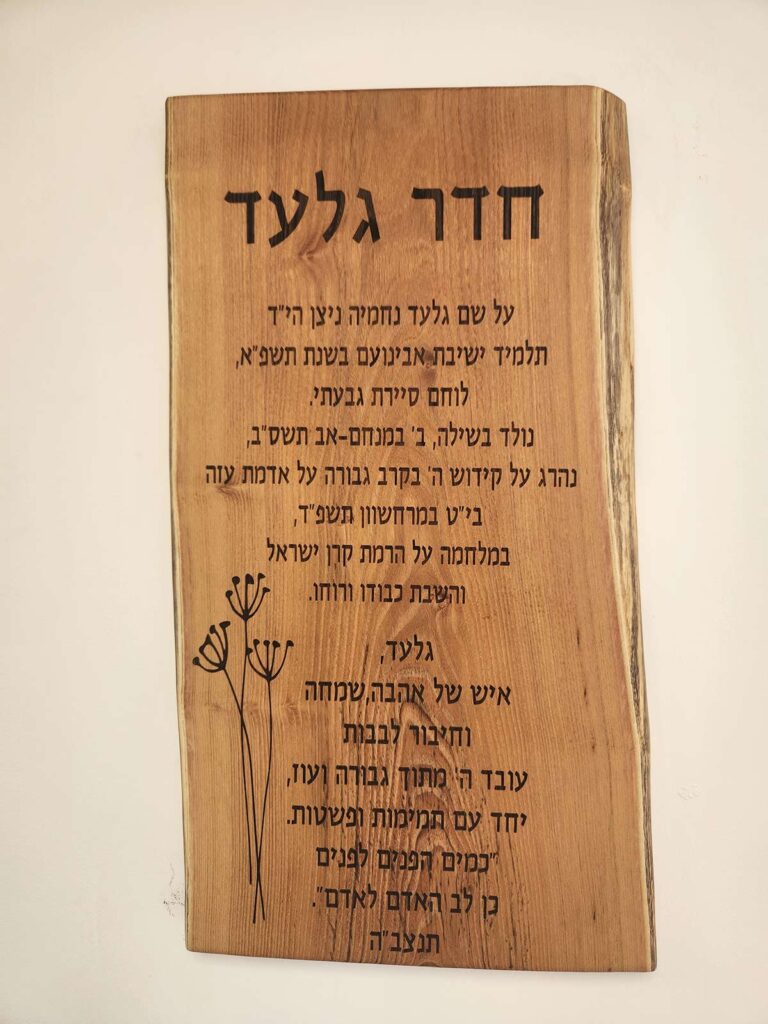 חדר גלעד
על שם גלעד נחמיה ניצן הי"ד
תלמיד ישיבת אבינועם בשנת תשפ"א,
לוחם סיירת גבעתי.
נולד בשילה, ב' במנחם-אב תשס"ב,
נהרג על קידוש ה' בקרב גבורה על אדמת עזה
בי"ט במרחשוון תשפ"ד,
במלחמה על הרמת קרן ישראל
והשבת כבודו ורוחו.
גלעד,
איש של אהבה,שמחה
וחיבור לבבות
עובד ה' מתוך גבורה ועוז,
יחד עם תמימות ופשטות.
"כמים הפנים לפנים
כן לב האדם לאדם".
תנצב"ה